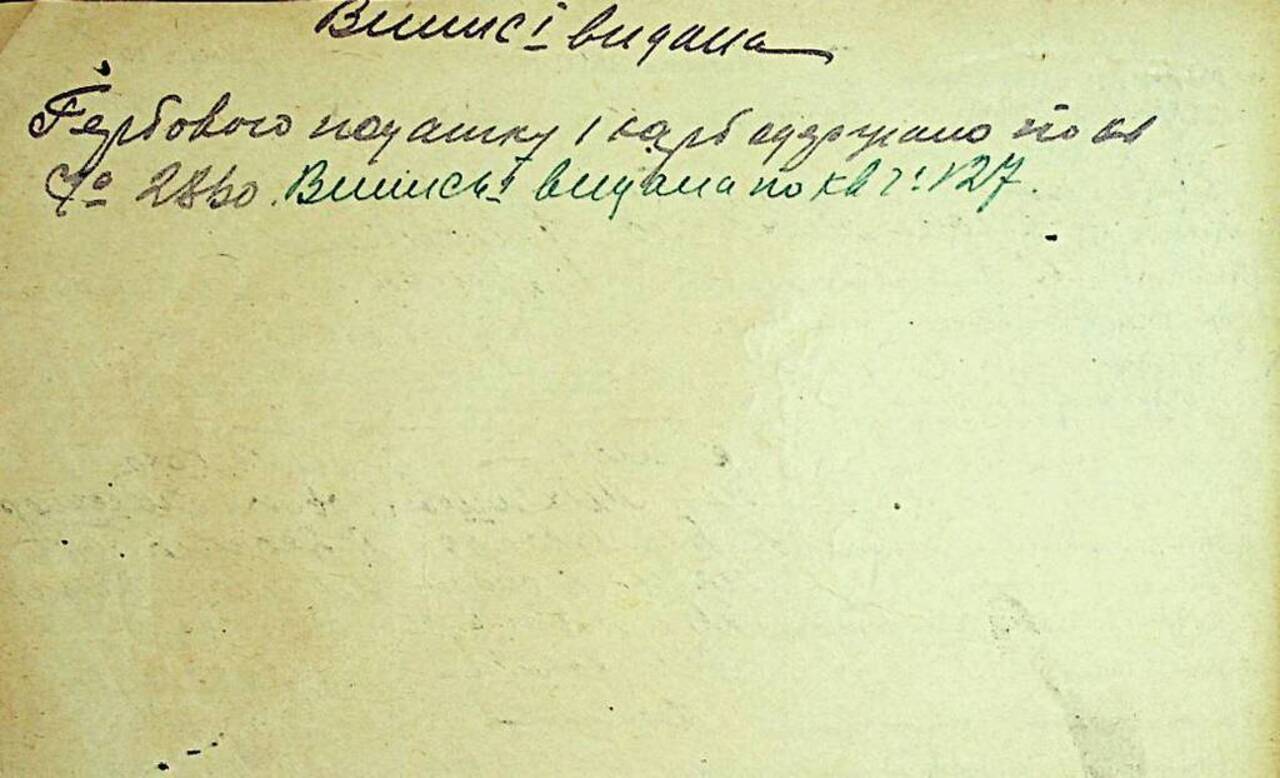 Виписі видана
Гербового податку 1 карб одержано по кв
№ 2830. Виписі видана по кв ч: 127.